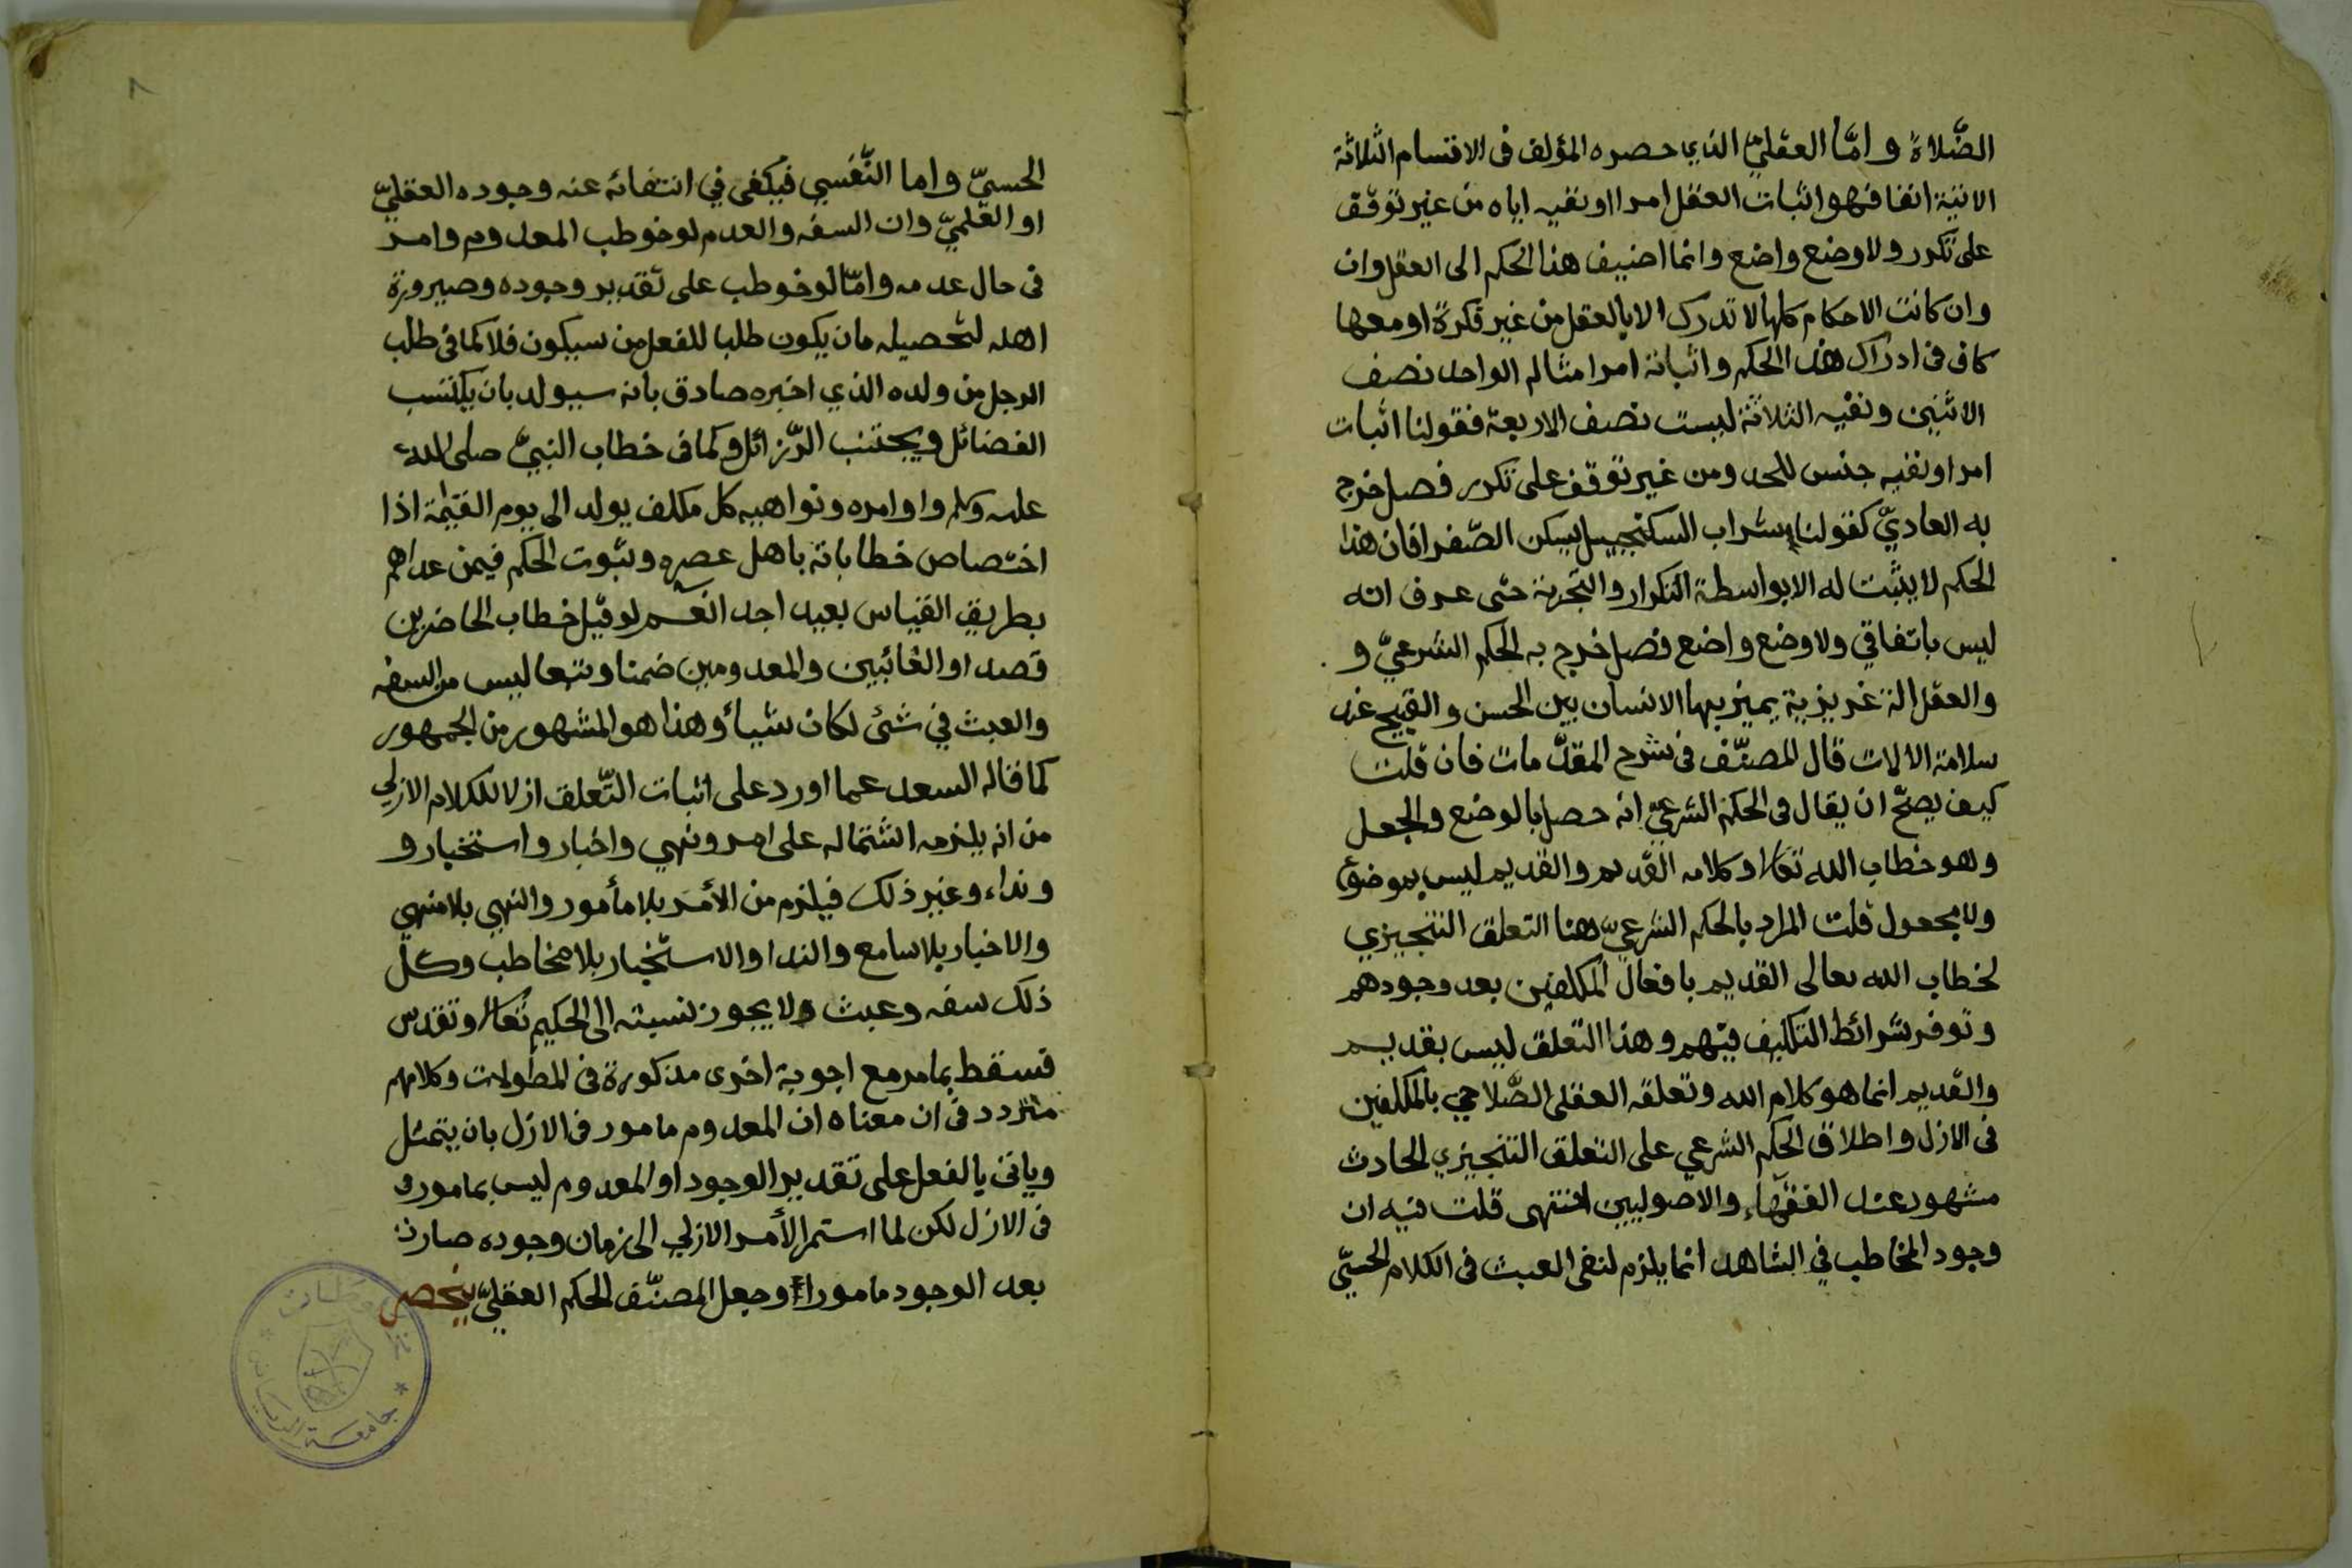 الصّلاة وامّا العقليّ الذي حصره المؤلف فى الاقتسام الثلاثة
الاتية انفا فهو اثبات العقل امرا او نفيه اياه من غير توقّف
على تكرر ولا وضع واضع وانما اضيف هذا الحكم الى العقل وان
وان كانت الاحكام كلها لا تدرك الا بالعقل من غير فكرة او معها
كافى فى ادراك هذا الحكم واثباته امرا مثاله الواحد نصف
الاثنين ونفيه الثلاثة ليست نصف الاربعة فقولنا اثبات
امرا ونفيه جنس للحد ومن غير توقّف على تكرر فصل خرج
به العاديّ كقولنا شراب السكنجبيل يسكن الصّفرا فان هذا
الحكم لا يثبت له الا بواسطة التكرار والتجربة حتى عرف انه
ليس باتفاقي ولا وضع واضع فصل خرج به الحكم الشرعيّ و
والعقل الة غريزية يميز بها الانسان بين الحسن والقبيح عند
سلامة الالات قال المصنّف فى شرح المقدّمات فان قلت
كيف يصحّ ان يقال فى الحكم الشرعيّ انه حصل بالوضع والجعل
وهو خطاب الله تعالى وكلامه القديم والقديم ليس بموضوع
ولا مجعول قلت المراد بالحكم الشرعيّ هنا التعلق التنجيزي
لخطاب الله تعالى القديم بافعال المكلفين بعد وجودهم
وتوفر شرائط التكليف فيهم وهذا التعلق ليس بقديم
والقديم انما هو كلام الله وتعلقه العقلى الصّلاحي بالمكلفين
فى الازل واطلاق الحكم الشرعي على التعلق التنجيزي الحادث
مشهور عند الفقهاء والاصوليين انتهى قلت فيه ان
وجود المخاطب في الشاهد انما يلزم لنفى العبث فى الكلام الحسّيّ
٨
الحسيّ واما النّفسي فيكفى في انتفائه عنه وجوده العقليّ
او العلميّ وان السفه والعدم لو خوطب المعدوم وامر
فى حال عدمه وامّا لو خوطب على تقدير وجوده وصيرورة
اهله لتحصيله مان يكون طلبا للفعل من سيكون فلا كما فى طلب
الرجل من ولده الذي اخبره صادق بانه سيولد بان يكتسب
الفضائل ويجتنب الرّزائل وكما فى خطاب النبيّ صلى الله
عليه وسلم واوامره ونواهيه كل مكلف يولد الى يوم القيمة اذا
اختصاص خطاباته باهل عصره وثبوت الحكم فيمن عداهم
بطريق القياس بعيد اجد انعم لو قيل خطاب الحاضرين
قصد او الغائبين والمعدومين ضمنا وتبعا ليس من السفه
والعبث في شئ لكان شيأ وهذا هو المشهور من الجمهور
كما قاله السعد عما اورد على اثبات التّعلق ازلا للكلام الازلي
من انه يلزمه اشتماله على امر ونهي واخبار واستخبار و
ونداء وغير ذلك فيلزم من الأمر بلا مأمور والنهي بلا منهي
والاخبار بلا سامع والندا والاستخبار بلا مخاطب وكلّ
ذلك سفه وعبث ولا يجوز نسبته الى الحكيم تعالى وتقدس
فسقط بما مر مع اجوبة اخرى مذكورة فى المطولات وكلامهم
متردد فى ان معناه ان المعدوم مامور فى الازل بان يتمثل
وياتى بالفعل على تقدير الوجود او المعدوم ليس بمامور و
فى الازل لكن لما استمر الأمر الازلي الى زمان وجوده صار
بعد الوجود مامورا وجعل المصنّف الحكم العقليّ ينحصر
جامعة الرياض